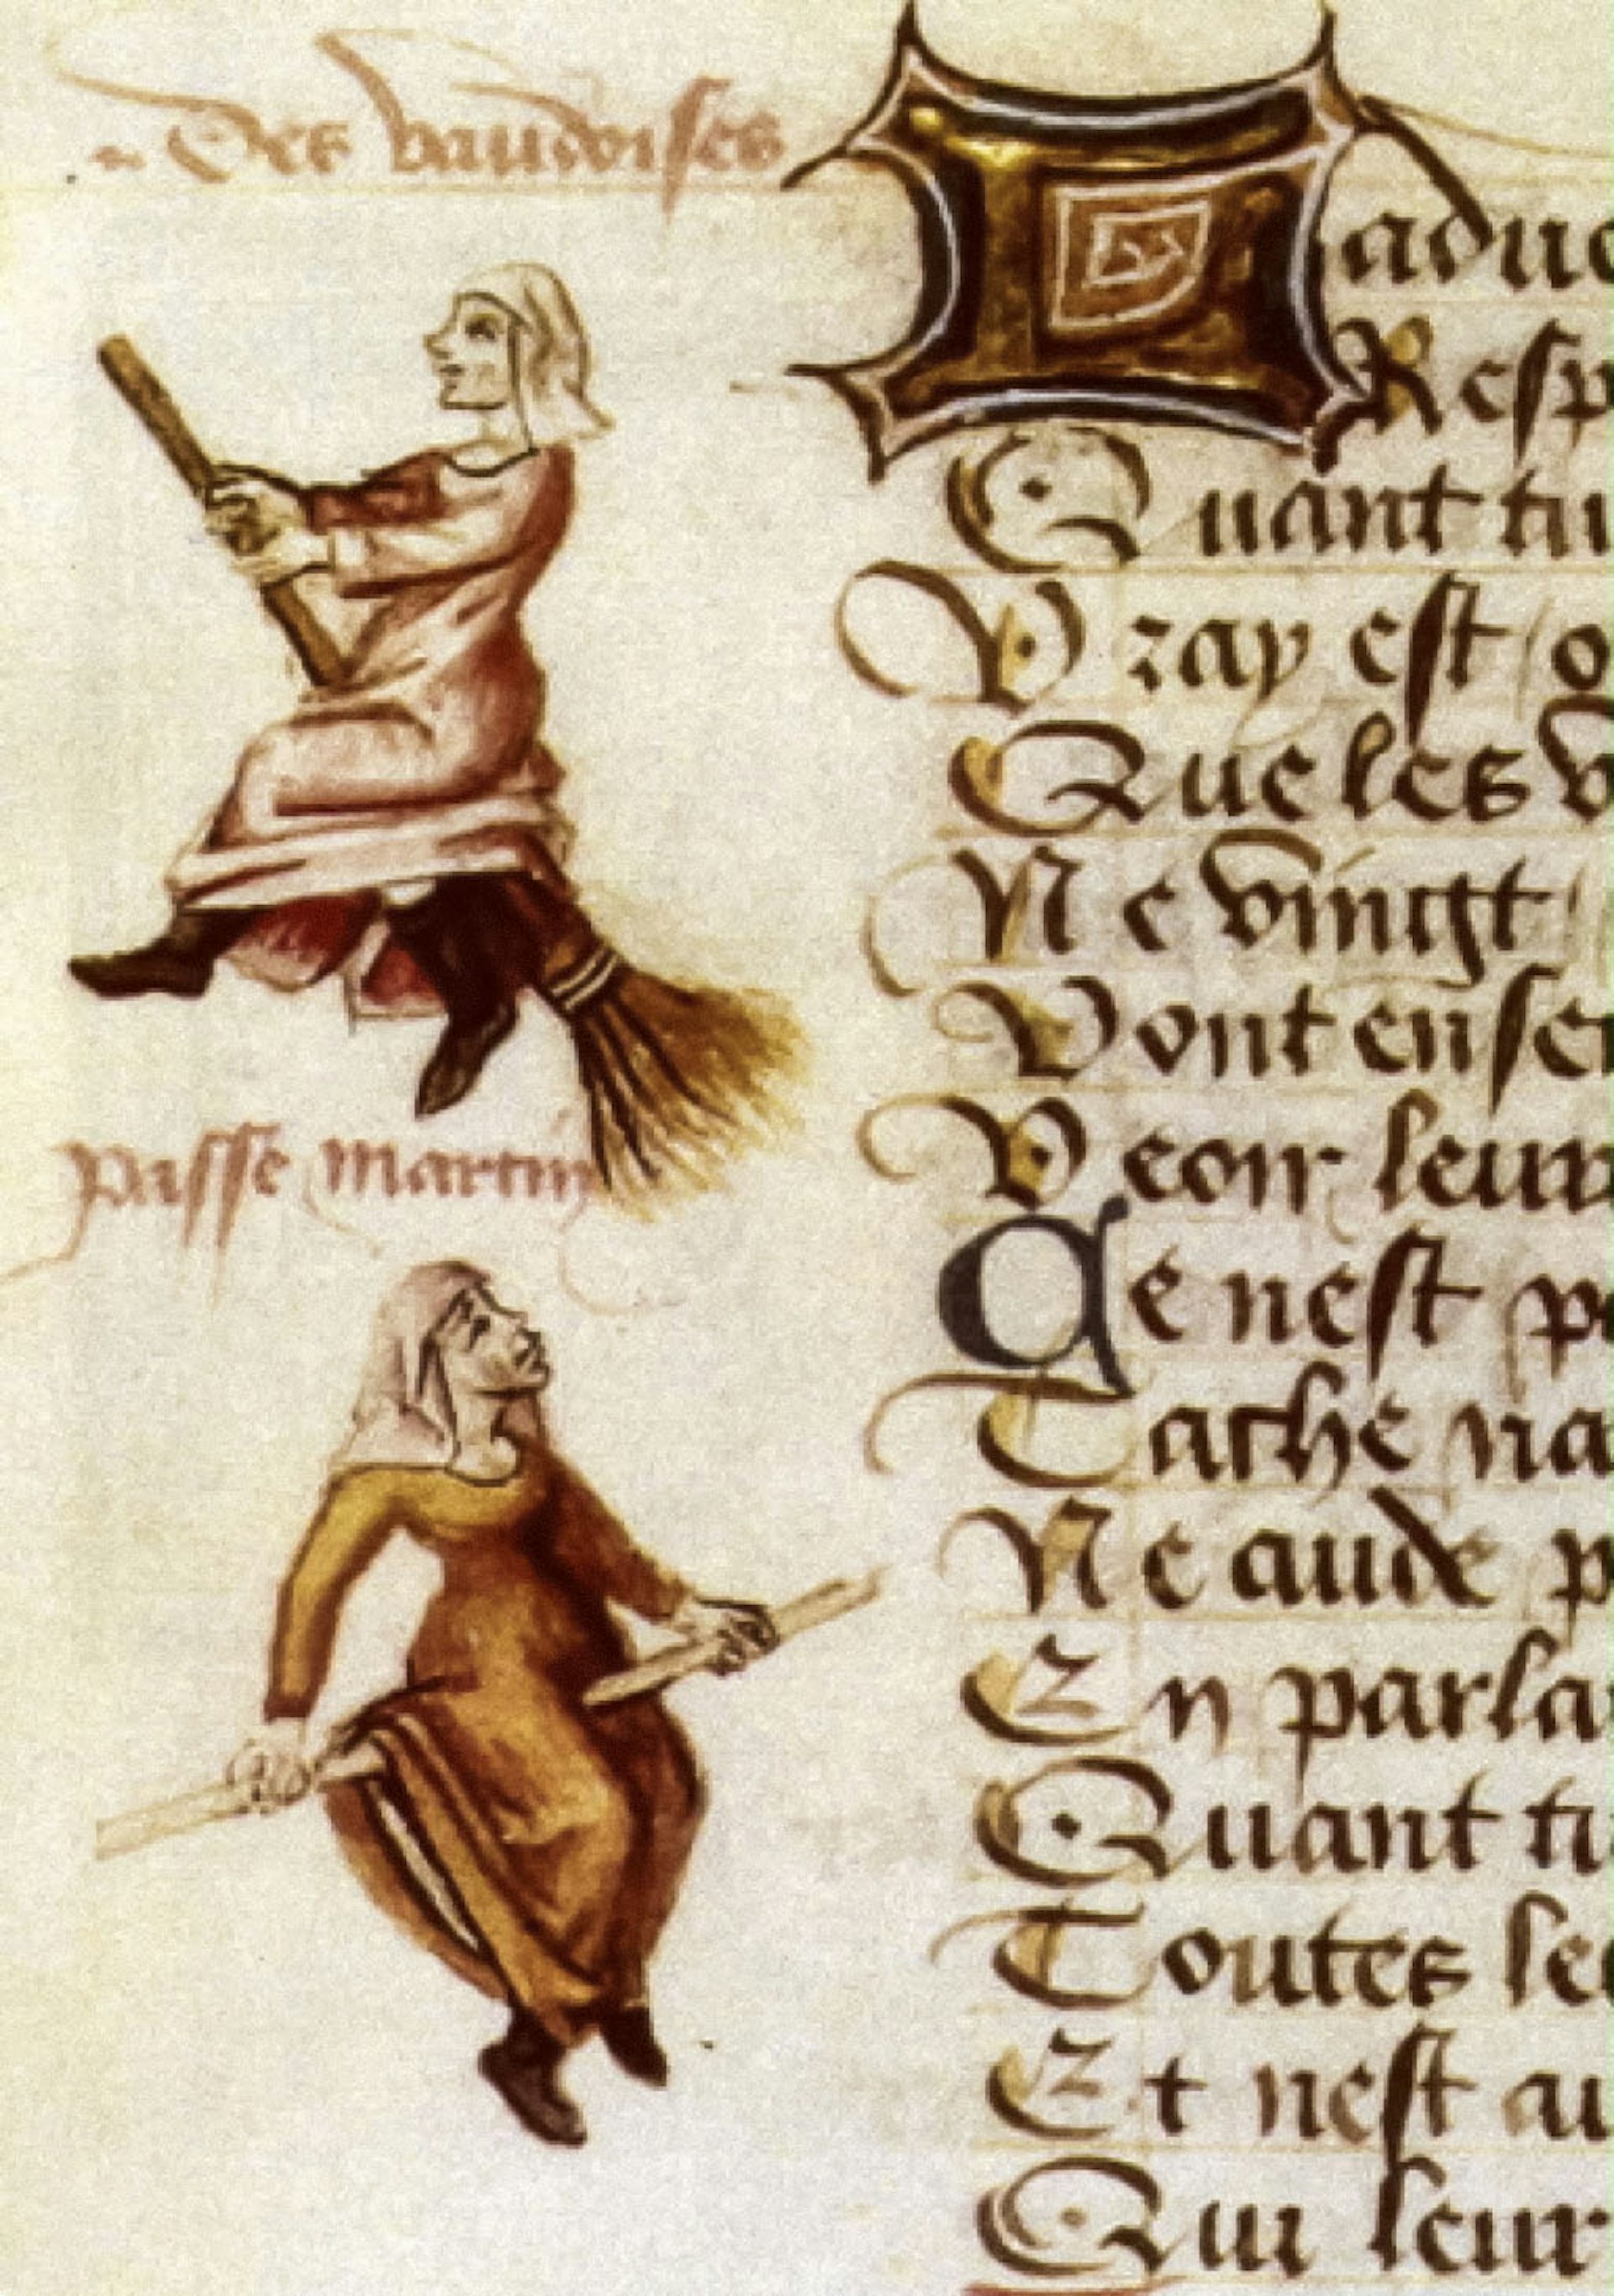 Des vaudoises
passe martin
Ladue
Resp
Quant tu
Vray est o
Que les v
Ne vingt
Vont enser
Veoir leurs
Ce nest p
Tache na
Ne aude p
En parla
Quant tu
Toutes les
Et nest au
Qui leur